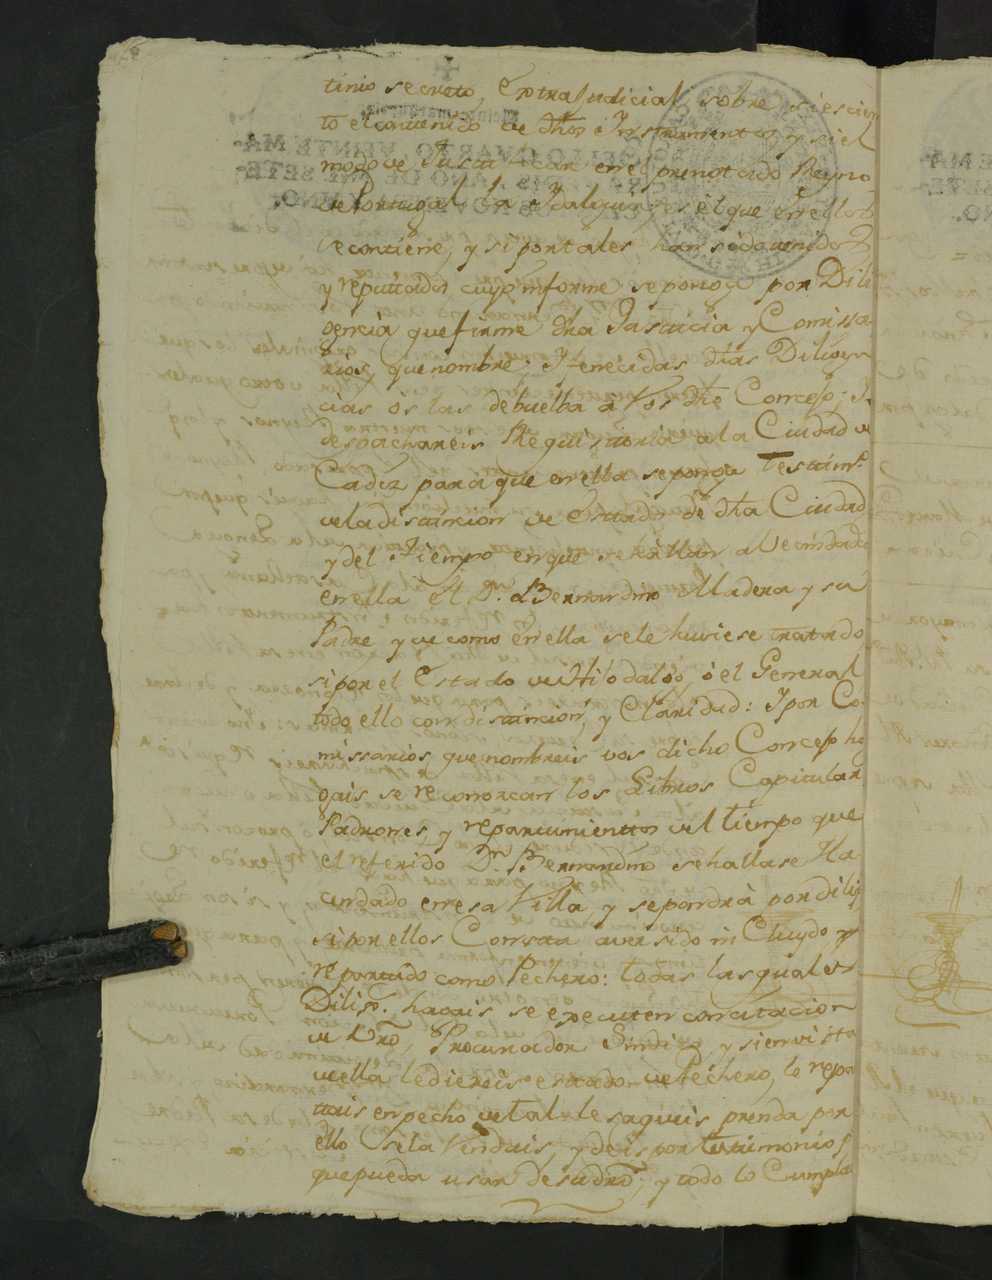 tinio secreto, Extrajudicial, sobre si es cier
to el contenido de dhos Instrumentos, y si el
modo de Justificar en el prenotado Reyno
de Portugal la Idalguia, es el que en ellos
se contiene, y si por tales han sido tenidos
y reputados cuyo informe se ponga por Dili
gencia que firme dha Justicia y Comissa
rios, que nombre; y fenecidas dhas Diligen
cias os las debuelba a Vos dho Concejo; I
despachareis Requisitoria a la Ciudad de
Cadiz para que en ella se ponga Testim.º
de la distincion de Estados de dha Ciudad
y del tiempo en que se hallan abecindados
en ella el Dn. Bernardino Madera y su
Padre y de como en ella se le huviese tratado
si por el Estado de Hijodalgo, ó el General
todo ello con distincion, y Claridad: I por Co
missarios, que nombreis vos dicho Concejo ha
gais se reconozcan los Libros Capitular
Padrones, y repartimientos del tiempo que
el referido Dn. Bernardino se hallase Ha
cendado en esa Villa, y se pondrà por dilig
si por ellos Consta aver sido incluydo y
repartido como Pechero: todas las quales
Dilig.s hagais se executen con citacion
de Vrõ Procurador Sindico, y si en vista
de ella le diereis estado de Pechero, le repar
tais en pecho de tal, le saqueis prenda por
ello se la Vendais, y deis por testimonio p
que pueda usar de su drõ; y todo lo Cumpla